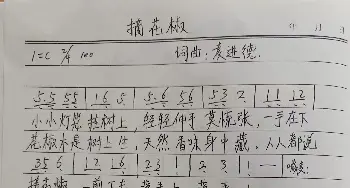 摘花椒
年 月 日
1=C 2/4 100 词曲:袁进德
5.5 55 | 1 6 5 | 5.6 56 | 53 2 | 11 12
小小灯笼挂树上,轻轻伸手莫慌张,一手在下
花椒本是树上生,天然香味身中藏,人人都说
35 6 | 12 16 | 23 1 | 2 3 | 1 — |
摘花椒 一前